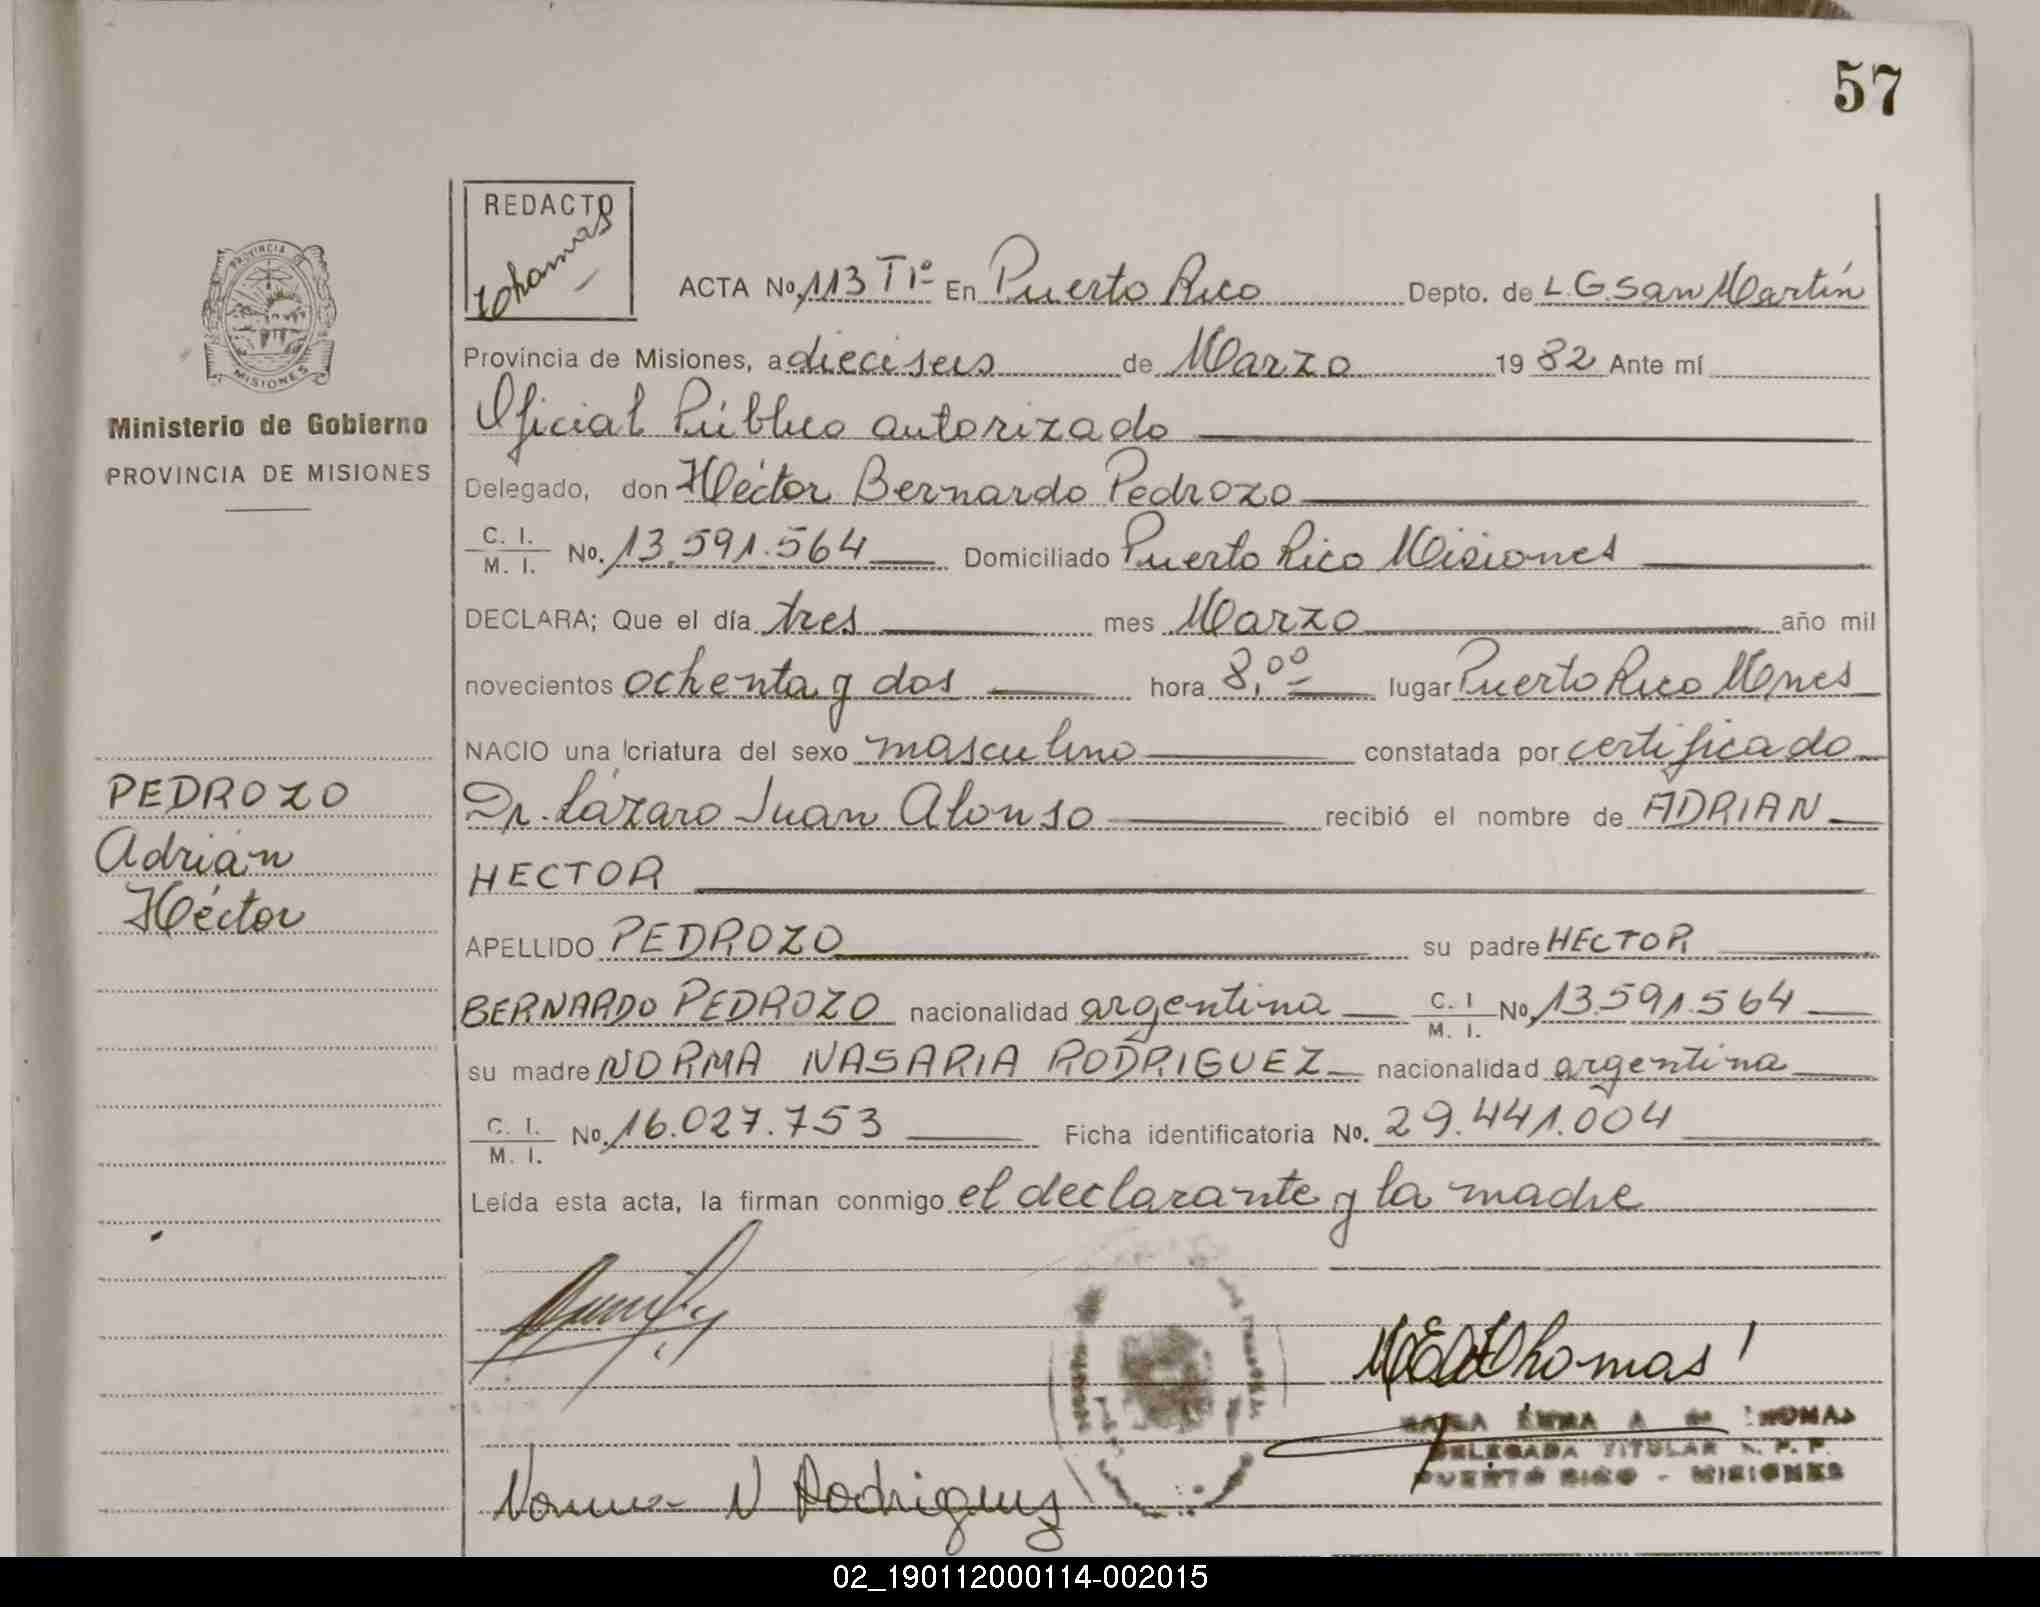 57
REDACTO
Thomas
PROVINCIA DE
MISIONES
Ministerio de Gobierno
PROVINCIA DE MISIONES
PEDROZO
Adrián
Héctor
ACTA No. 113 TIº En Puerto Rico Depto. de L.G.San Martín
Provincia de Misiones, a dieciseis de Marzo 1982 Ante mí
Oficial Público autorizado
Delegado, don Héctor Bernardo Pedrozo
C. I. M. I. No. 13.591.564 Domiciliado Puerto Rico Misiones
DECLARA; Que el día tres mes Marzo año mil
novecientos ochenta y dos hora 8,00 lugar Puerto Rico Mnes
NACIO una criatura del sexo masculino constatada por certificado
Dr. Lázaro Juan Alonso recibió el nombre de ADRIAN
HECTOR
APELLIDO PEDROZO su padre HECTOR
BERNARDO PEDROZO nacionalidad argentina C. I M. I. No. 13.591.564
su madre NORMA NASARIA RODRIGUEZ nacionalidad argentina
C. I. M. I. No. 16.027.753 Ficha identificatoria No. 29.441.004
Leída esta acta, la firman conmigo el declarante y la madre
Thomas
EMMA A de THOMAS
DELEGADA TITULAR
PUERTO RICO - MISIONES
Norma N Rodriguez
02_190112000114-002015